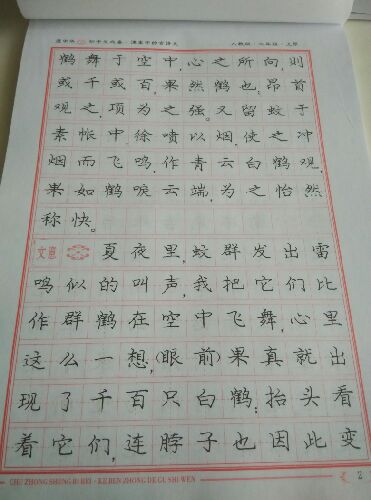 鹤舞于空中,心之所向,则
或千或百,果然鹤也;昂首
观之,项为之强。又留蚊于
素帐中,徐喷以烟,使之冲
烟而飞鸣,作青云白鹤观,
果如鹤唳云端,为之怡然
称快。
文意 夏夜里,蚊群发出雷
鸣似的叫声,我把它们比
作群鹤在空中飞舞,心里
这么一想,(眼前)果真就出
现了千百只白鹤;抬头看
着它们,连脖子也因此变
CHU ZHONG SHENG BI BEI · KE BEN ZHONG DE GU SHI WEN
2